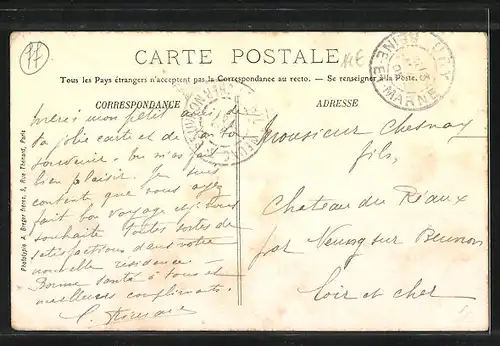 77
CARTE POSTALE
Tous les Pays étrangers n'acceptent pas la Correspondance au recto. — Se renseigner à la Poste.
CORRESPONDANCE
ADRESSE
MARNE
Merci mon petit ami de
ta jolie carte et de ton
souvenir. tu m'as fait
bien plaisir. Je suis
content, que vous ayez
fait bon voyage et vous
souhaite toutes sortes de
satisfactions dans votre
nouvelle résidence —
Bonne santé à tous et
meilleurs compliments.
Monsieur Chesnay
fils,
Chateau du Réaux
par Neung sur Beuvron
Loir et Cher
Phototypie A. Breger frères, 9, Rue Thénard, Paris